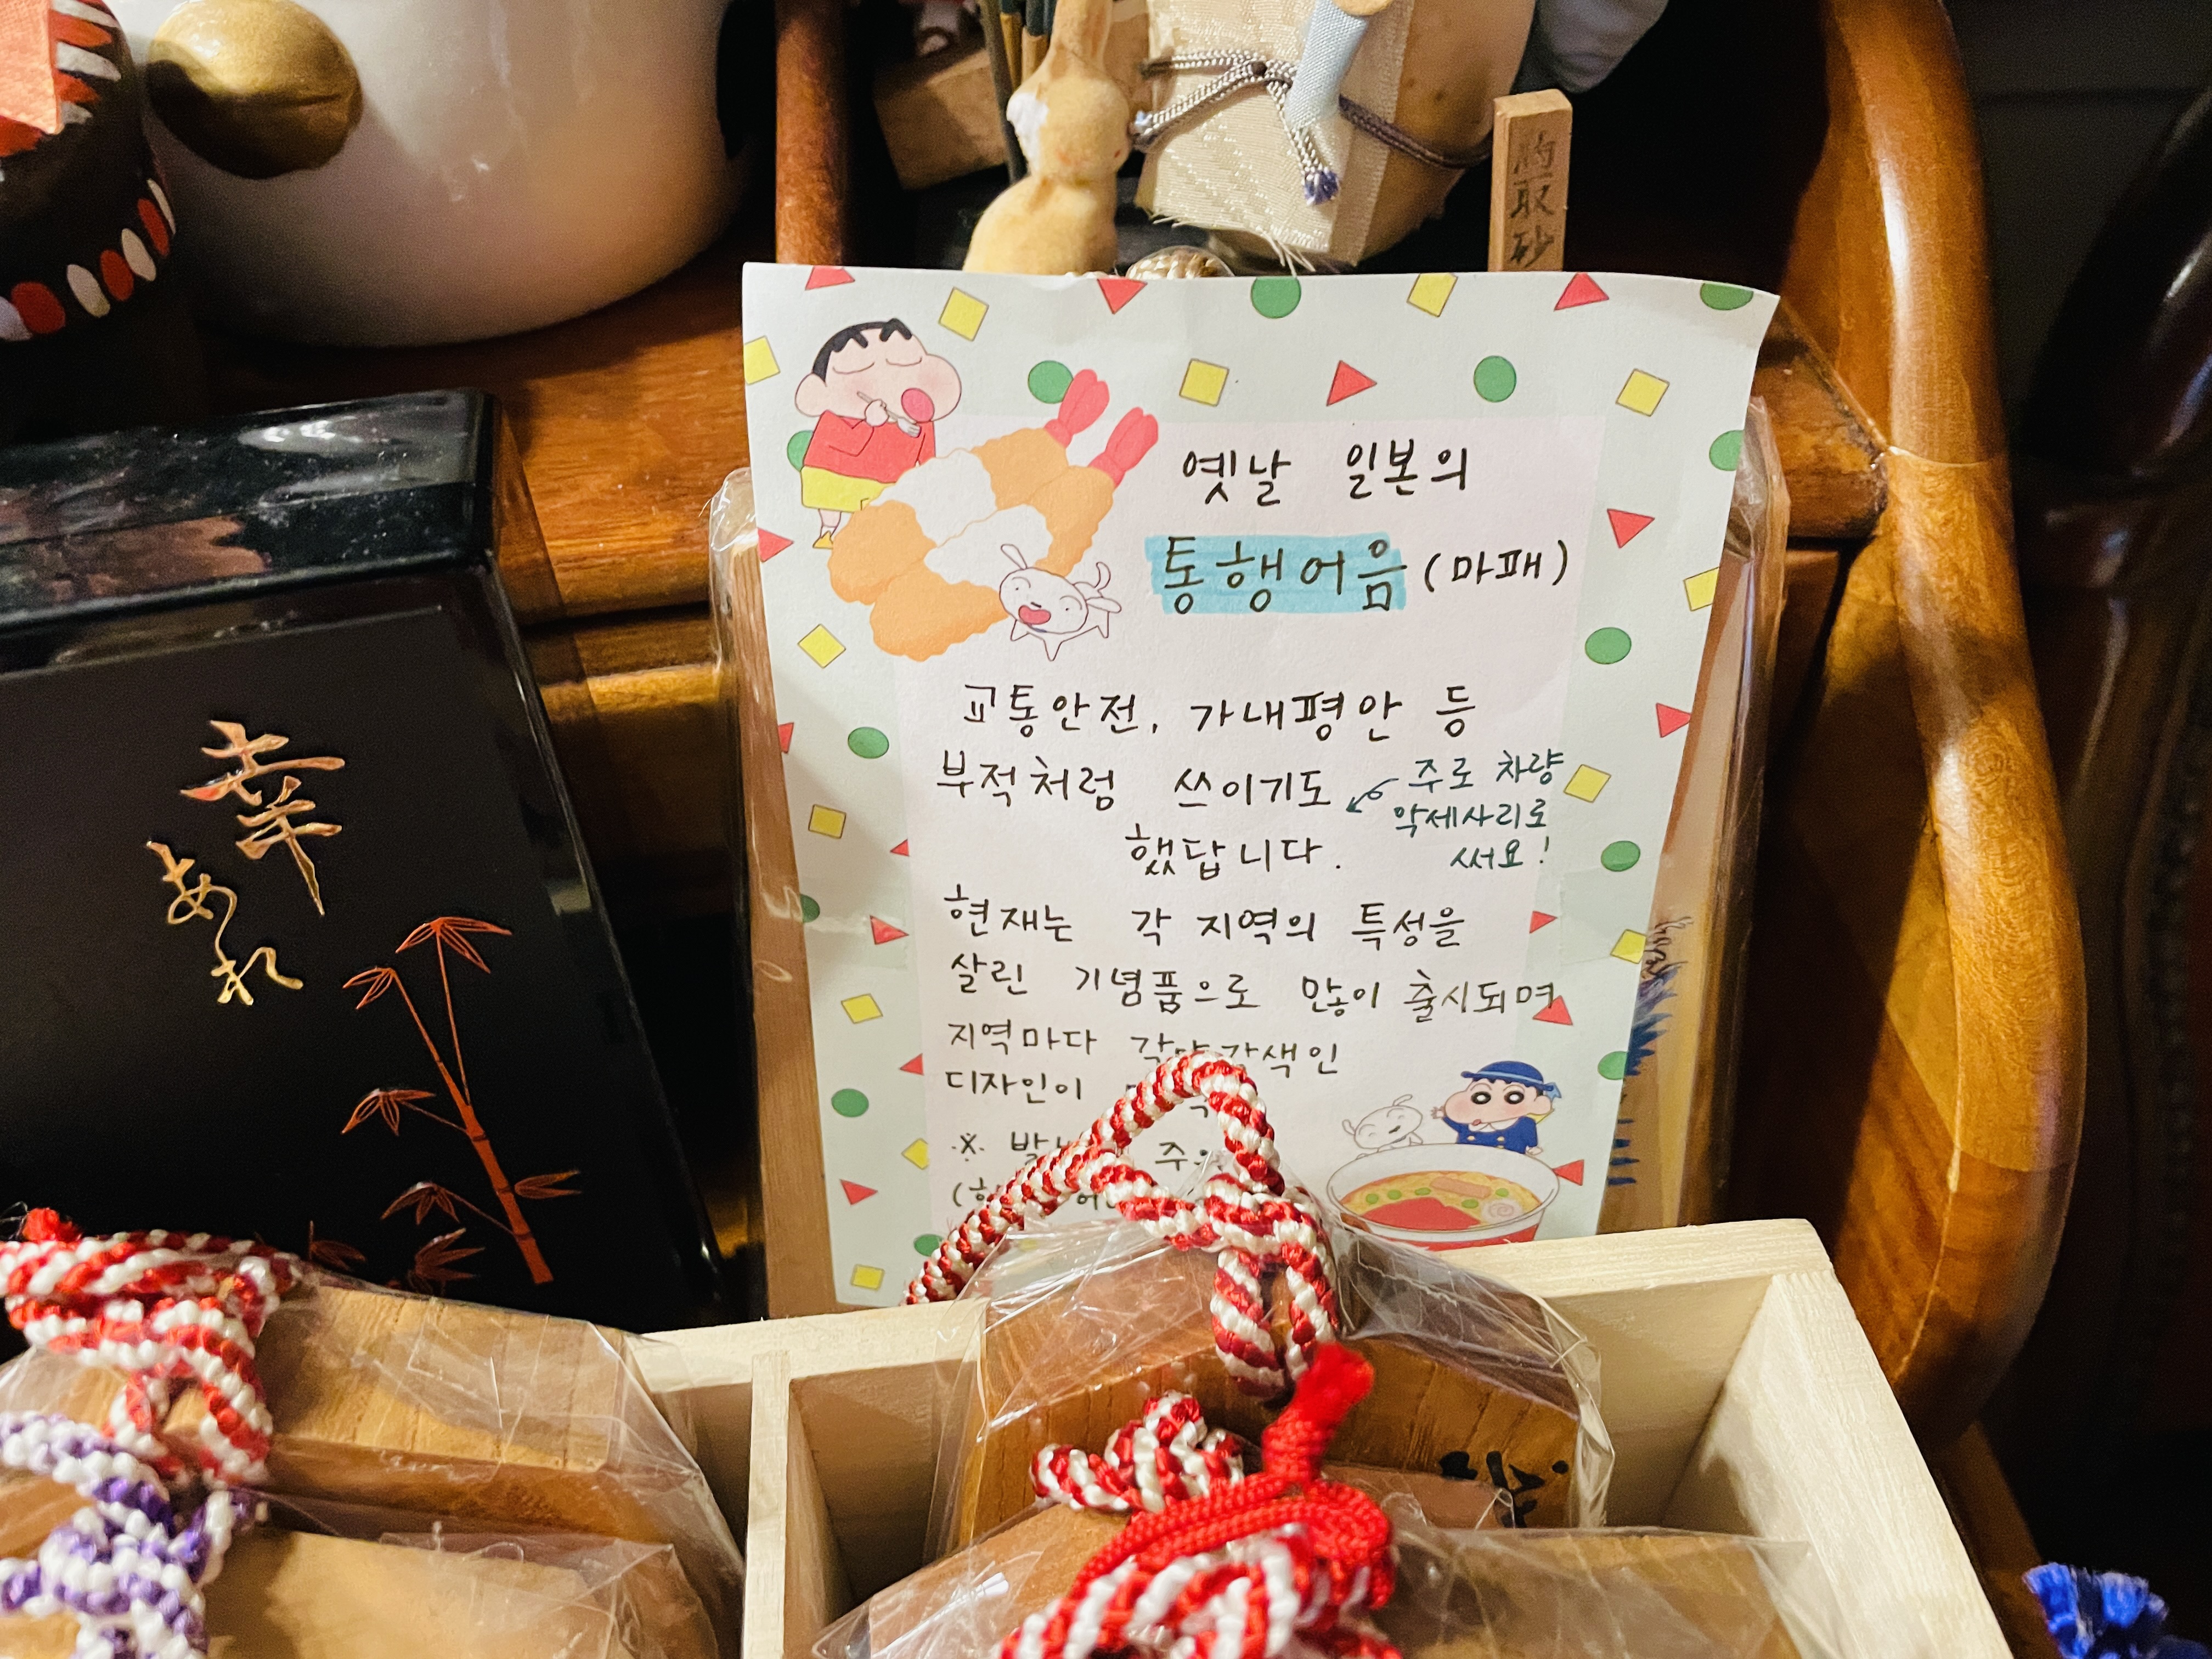 옛날 일본의
통행어음 (마패)
교통안전, 가내평안 등
부적처럼 쓰이기도
했답니다.
주로 차량
악세사리로
써요!
현재는 각 지역의 특성을
살린 기념품으로 많이 출시되며
지역마다 각양각색인
디자인이
※
幸
あれ
取
砂